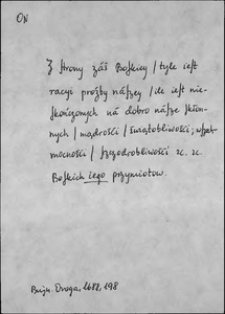 ON
Z strony záś Boskiey / tyle iest
racyi prośby nászey / ile iest nie-
skończonych ná dobro násze skłon-
nych / mądrości / świątobliwości, wszech-
mocności / szczodrobliwości ꝛc. ꝛc.
Boskich iego przymiotow.
Bujn. Droga, 1688, 198